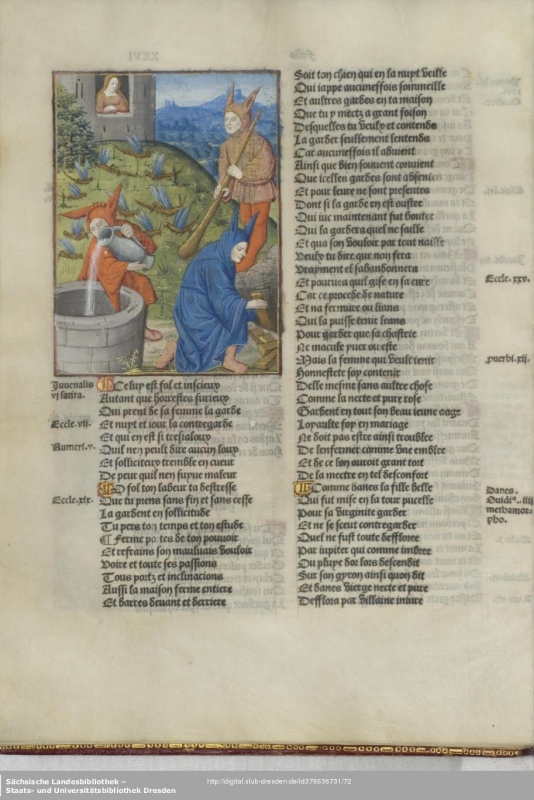 Juvenalis
vi satira.
Eccle. vii.
Numeri. v.
Eccle. xix.
Celuy est fol et inscieux
Autant que horrestes furieux
Qui prent de sa femme la garde
Et nuyt et iour la contregarde
Et qui en est si tresialoux
Quil nen peult dire aucun loux
Et solliciteux tremble en cueur
De peur quil nen supue maleur
O fol ton labeur ta deftresse
Que tu prens sans fin et sans cesse
La gardent en sollicitude
Tu pers ton temps et ton estude
¶ Ferme portes de ton pouvoir
Et refrains son mauluais vouloir
Voire et toute ses passions
Tous portz et inclinacions
Aussi la maison ferme entiere
Et barres devant et derriere
Soit ton chien qui en la nuyt veille
Qui iappe aucuneffois sommeille
Et aultres gardes en ta maison
Que tu y metz a grant foison
Desquelles tu veulx et contends
La garder seullement lentends
Car aucuneffois il advient
Ainsi que bien souuent conuient
Que icelles gardes sont absentes
Et pour leure ne sont presentes
Dont si la garde en est oustee
Qui iuc maintenant fut boutee
Qui la gardera quel ne faille
Et qua son vouloir par tout naille
Veulx tu dire que non fera
Vrayment el sabandonnera
Et pourueu quil gise en sa cure
Car ce procede de nature
Et na fermure ou liens
Qui la puisse tenir leans
Pour garder que sa chastete
Ne macule puer ou este
Mais la femme qui veult tenir
Honnestete soy contenir
Delle mesme sans aultre chose
Comme la necte et pure rose
Gardent en tout son beau ieune aage
Loyaulte foy en mariage
Ne doit pas estre ainsi troublee
De lenfermer comme une emblee
Et de ce lon auroit grant tort
De la mectre en tel desconfort
Comme danes la fille belle
Qui fut mise en la tour pucelle
Pour sa virginite garder
Et ne se sceut contregarder
Quel ne fust toute deffloree
Par iupiter qui comme imbree
Ou pluye dor lors descendit
Sur son gyron ainsi quon dit
Et danes vierge necte et pure
Defflora par villaine iniure
Eccle. xxv.
puerbi. xii.
Danes.
Ouidi⁹. iiii
methamor-
pho.
Sächsische Landesbibliothek –
Staats- und Universitätsbibliothek Dresden
http://digital.slub-dresden.de/id378636731/72